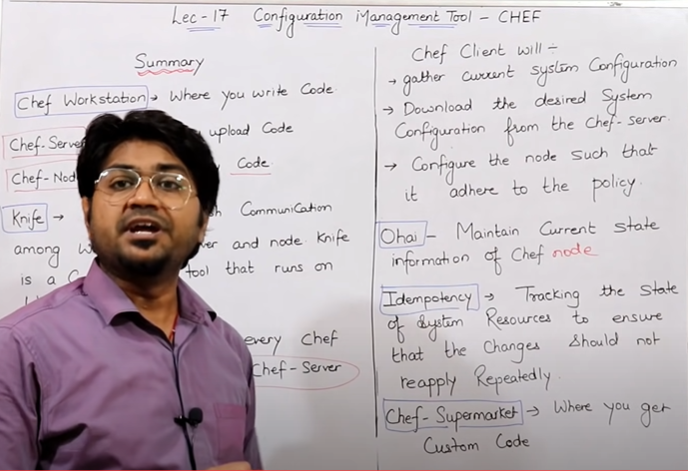 Lec-17 Configuration Management Tool - CHEF
Summary
Chef Workstation → Where you write Code.
Chef-Server upload Code
Chef-Nod Code.
Knife → Communication
among W ver and node Knife
is a C tool that runs on
every Chef
Chef-Server
Chef Client will ÷
→ gather current system Configuration
→ Download the desired System
Configuration from the Chef-server.
→ Configure the node such that
it adhere to the policy.
Ohai - Maintain Current state
information of Chef node
Idempotency → Tracking the State
of System Resources to ensure
that the Changes should not
reapply Repeatedly.
Chef-Supermarket → Where you get
Custom Code